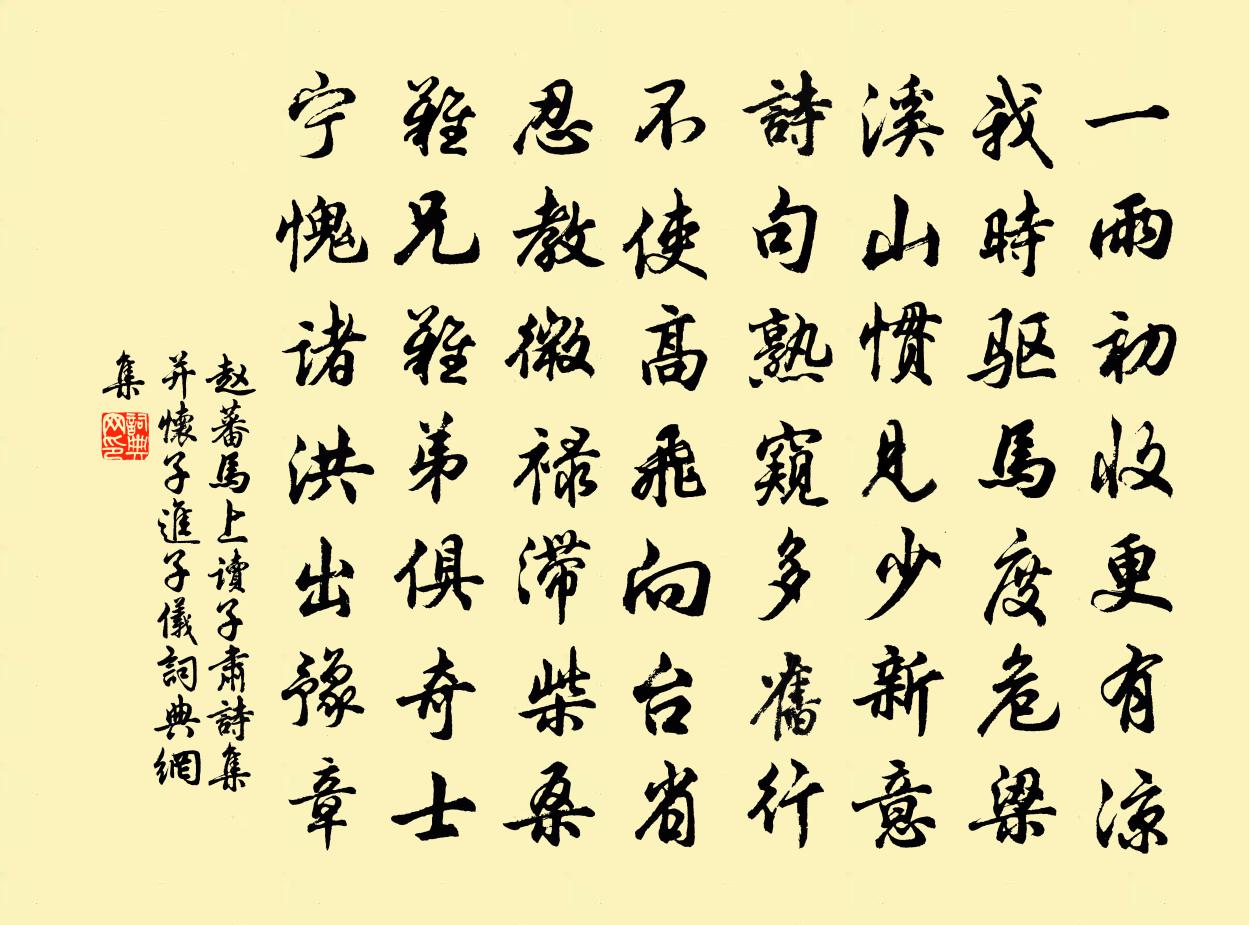 一雨初收更有涼
我時驱馬度危梁
溪山慣見少新意
詩句熟窺多舊行
不使高飛向台省
忍教微禄滞柴桑
難兄難弟俱奇士
宁愧诸洪出豫章
赵蕃馬上读子肅詩集
并懷子進子儀詞典網
集
詞典網印